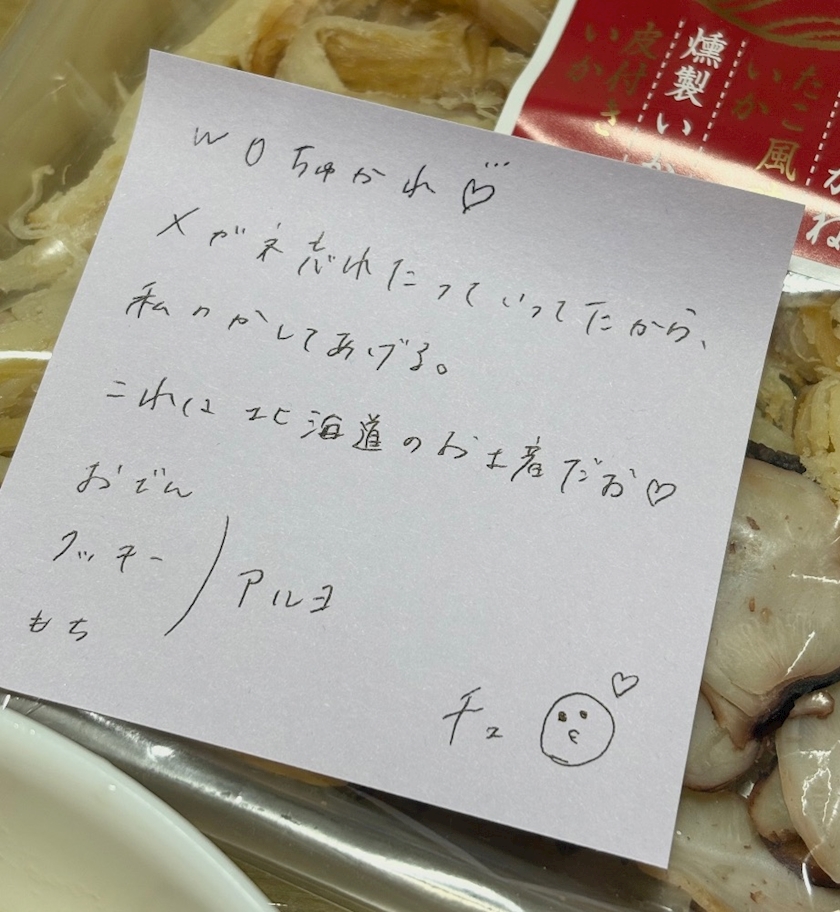 WOちゅかれ♡
メガネ忘れたっていってたから、
私のかしてあげる。
これは北海道のお土産だお♡
おでん
クッキー
もち
アルヨ
チュ
皮付き
いか
燻製いか
たこ風
いか